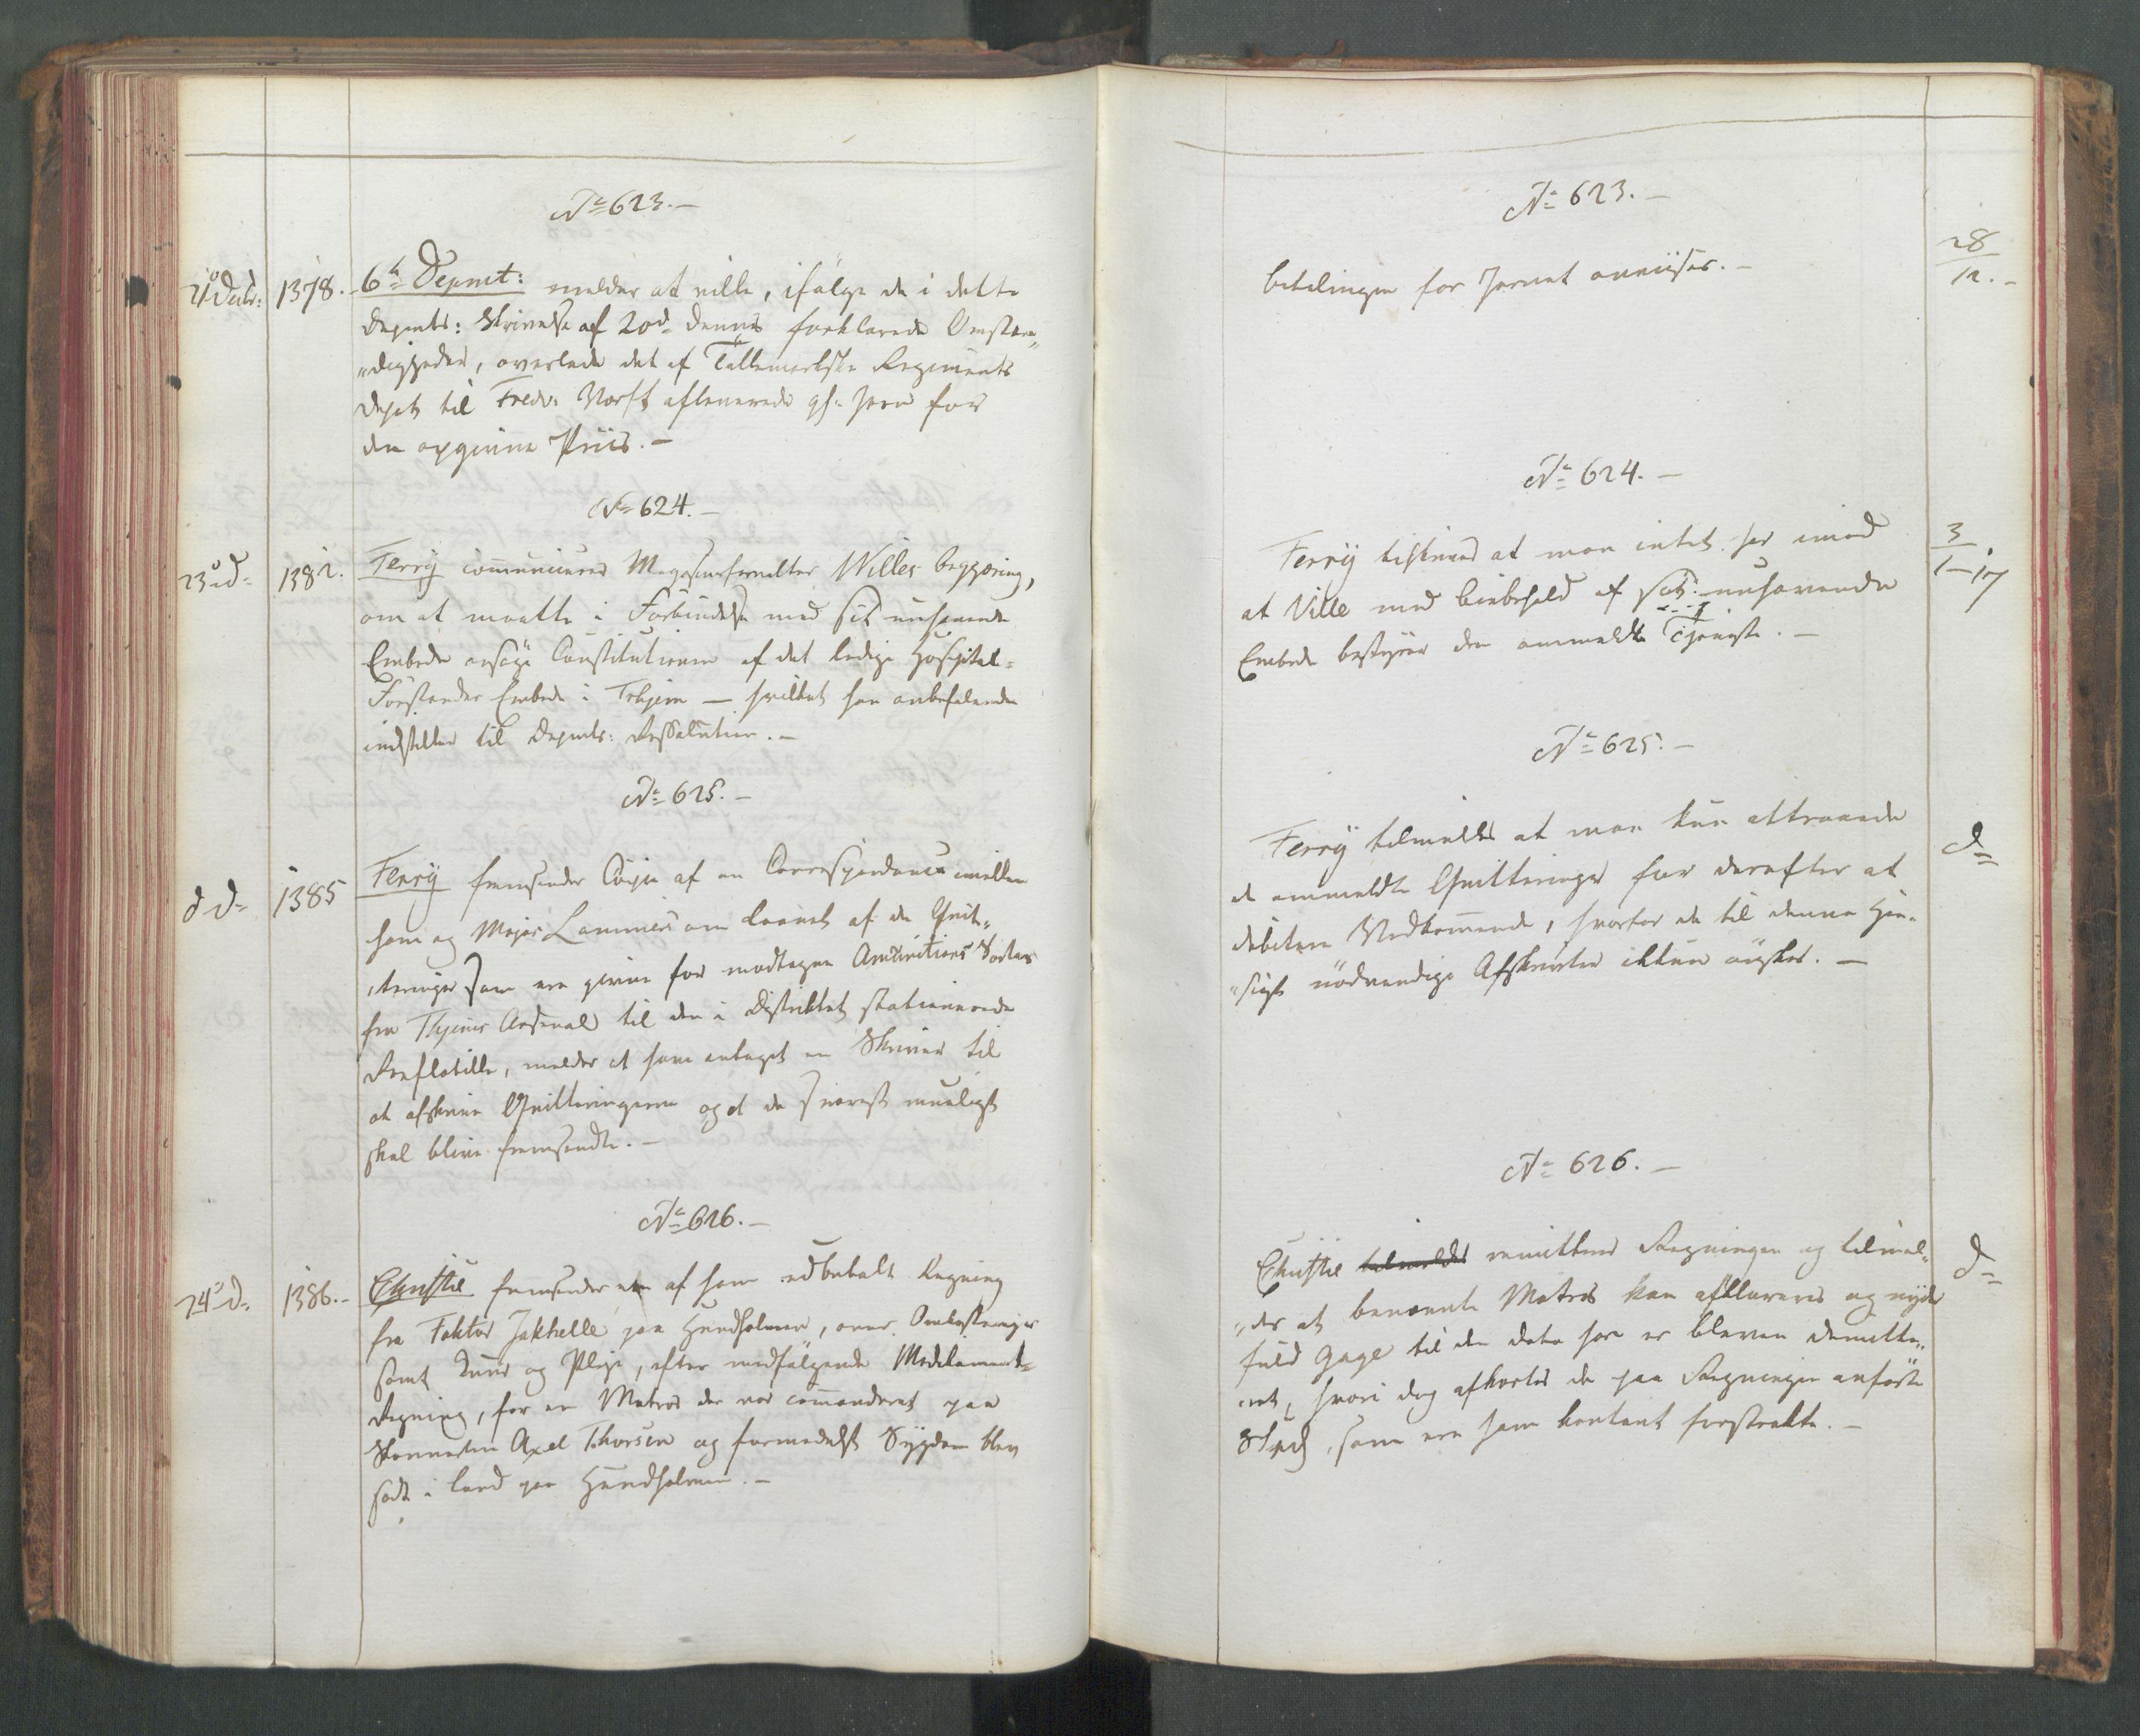 No 623.-
21 Decbr: 1378. 6te Depmt: melder at ville, ifølge de i dette
Depmts: Skrivelse af 20d dennes forklarede Omstæn„
„digheder, overlade det af Tellemarkske Regiments
Depot til Fredr: Værft afleverede gl. Jern for
den opgivne Priis.-
No 624.-
23 d. 1382. Ferry communicerer Magasinforvalter Willes begjæring,
om at maatte i Forbindelse med sit nuhavende
Embede ansøge Constitutionen af det ledige Hospital-
Forstander Embede i Trhjem — hvilket han anbefalende
indstiller til Depmts: Resolution.-
No 625.-
d d. 1385 Ferry fremsender Copie af en Correspondance imellem
ham og Major Lammers om Laanet af de Qvit-
„teringer som ere givne for modtagne Amunitions Sorter
fra Thjems Arsenal til den i Distriktet stationerede
Roeflotille, melder at have antaget en Skriver til
at afskrive Qvitteringerne og at de snarest mueligt
skal blive fremsendte.-
No 626.-
24 d. 1386.- Christie fremsender en af ham udbetalt Regning
fra Faktor Jakhelle paa Hundholmen, over Omkostninger
samt Kuur og Pleje, efter medfølgende Medikament-
Regning, for en Matros der var commanderet paa
Skonnerten Axel Thorsen og formedelst Sygdom blev
sadt i land paa Hundholmen.-
No 623.-
betalingen for Jernet anviises.-
28/12.-
No 624.-
Ferry tilskrives at man intet har imod
at Wille med bibehold af sit nuhavende
Embede bestyrer den anmeldte Tjeneste.-
3/1-17
No 625.-
Ferry tilmeldes at man kun attraaede
de anmeldte Qvitteringer for derefter at
debitere Vedkommende, hvorfor de til denne Hen-
„sigt nødvendige Afskrivter ikkun ønskes.-
d=
No 626.-
Christie tilmeldes remitteres Regningen og tilmel-
„des at benævnte Matros kan afklareres og nyde
fuld Gage til den dato han er bleven demitte„
„ret, hvori dog afkortes de paa Regningen anførte
8 Spd, som ere ham kontant forstrakte.-
d=